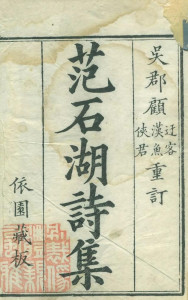 吳郡顧
迂客
漢魚
俠君
重訂
范石湖詩集
依園藏板